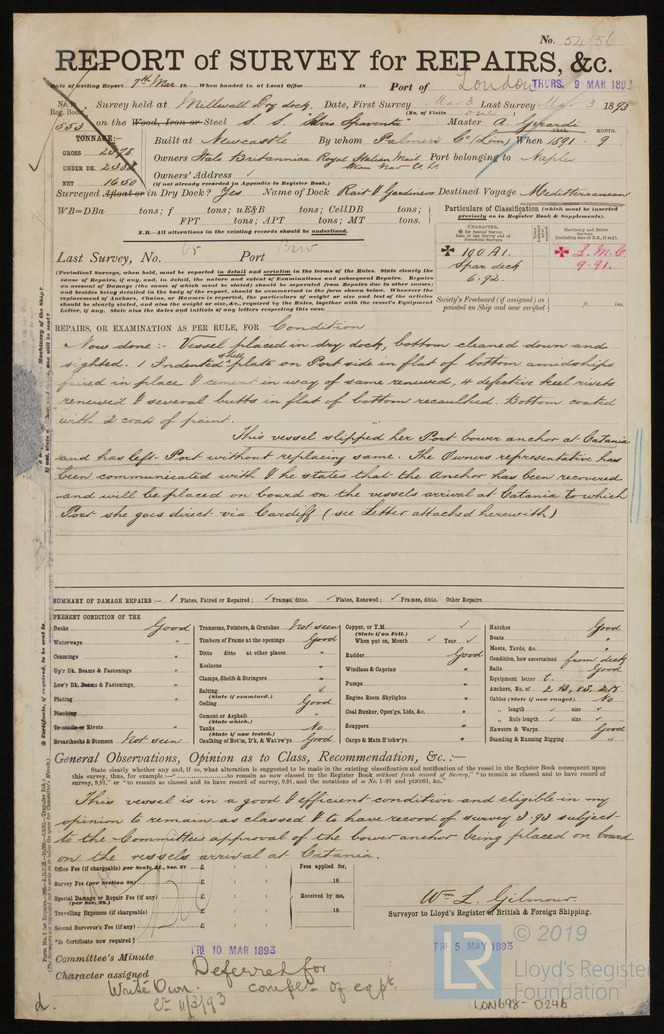 No. 54156
REPORT of SURVEY for REPAIRS, &c.
Date of writing Report 7th Mar 18 When handed in at Local Office 18 Port of London THURS. 9 MAR 1893
No. in Reg. Book. Survey held at Millwall Dry dock. Date, First Survey Mar 3 Last Survey Mar 3 1893
(No. of Visits one)
553 on the Wood, Iron or Steel S. S. Master A. Girardi
TONNAGE:— Built at Newcastle By whom Palmers Co (Lim) When 1891 YEAR. MONTH. 9
GROSS
UNDER DK.
NET 1650
Owners Italo Britannica Royal Italian Mail Steam Nav Co Ld Port belonging to Naples
Owners' Address
(if not already recorded in Appendix to Register Book.)
Surveyed Afloat or in Dry Dock? Yes Name of Dock Destined Voyage Mediterranean
WB=DBa tons; f tons; uE&B tons; CellDB tons;
FPT tons; APT tons; MT tons.
N.B.—All alterations in the existing records should be underlined.
Particulars of Classification (which must be inserted precisely as in Register Book & Supplements).
CHARACTER.
✠ 100 A1.
Spar deck
6.92.
✠ L.M.C.
9.91.
Society's Freeboard (if assigned) as painted on Ship and now verified ft. ins.
Last Survey, No. 65 Port
(Periodical Surveys, when held, must be reported in detail and seriatim in the terms of the Rules. State clearly the cause of Repairs, if any, and, in detail, the nature and extent of Examinations and subsequent Repairs. Repairs on account of Damage (the cause of which must be stated) should be separated from Repairs due to other causes; and besides being detailed in the body of the report, should be summarised in the form shown below. Whenever the replacement of Anchors, Chains, or Hawsers is reported, the particulars of weight or size and test of the articles should be clearly stated, and also the weight or size, &c., required by the Rules, together with the vessel's Equipment Letter, if any. State also the dates and initials of any letters respecting this case.
REPAIRS, OR EXAMINATION AS PER RULE, FOR Condition
Now done :- Vessel placed in dry dock, bottom cleaned down and
sighted. 1 Indented shell plate on Port side in flat of bottom amidships
faired in place & cement in way of same renewed, 4 defective keel rivets
renewed & several butts in flat of bottom recaulked. Bottom coated
with 2 coats of paint.
This vessel slipped her Port bower anchor at Catania
and has left Port without replacing same. The Owners representative has
been communicated with & he states that the Anchor has been recovered
and will be placed on board on the vessels arrival at Catania to which
Port she goes direct via Cardiff (see Letter attached herewith)
SUMMARY OF DAMAGE REPAIRS:— 1 Plates, Faired or Repaired; ✓ Frames, ditto. ✓ Plates, Renewed; ✓ Frames, ditto. Other Repairs
PRESENT CONDITION OF THE
Decks Good
Waterways "
Coamings "
Up'r Dk. Beams & Fastenings "
Low'r Dk. Beams & Fastenings "
Plating "
Planking
Treenails or Rivets "
Breasthooks & Stemson Not seen
Transoms, Pointers, & Crutches Not seen
Timbers of Frame at the openings Good
Ditto ditto at other places "
Keelsons "
Clamps, Shelfs & Stringers "
Salting (State if examined.) ✓
Ceiling Good
Cement or Asphalt (State which.) "
Tanks (State if now tested.) No
Caulking of Bot'm, D'k, & Wat'rw'ys Good
Copper, or Y.M. (State if on Felt.) ✓
When put on, Month ✓ Year ✓
Rudder Good
Windlass & Capstan "
Pumps "
Engine Room Skylights "
Coal Bunker, Open'gs, Lids, &c. "
Scuppers "
Cargo & Main H'tchw'ys "
Hatches Good
Boats "
Masts, Yards, &c. "
Condition, how ascertained from deck
Sails Good
Equipment letter t.
Anchors, No. of 2 B, 1 S, 2 K
Cables (State if now ranged) No
" length ✓ size ✓
" Rule length ✓ size ✓
Hawsers & Warps Good
Standing & Running Rigging "
General Observations, Opinion as to Class, Recommendation, &c.:—
State clearly whether any and, if so, what alteration is suggested to be made in the existing classification and notification of the vessel in the Register Book consequent upon
This vessel is in a good & efficient condition and eligible in my
opinion to remain as classed & to have record of survey 3.93 subject
to the Committees approval of the bower anchor being placed on board
on the vessels arrival at Catania.
Office Fee (if chargeable) per Scale II., Sec. 27 £ : :
Survey Fee (per Section 28) £ : :
Special Damage or Repair Fee (if any) (per Sec. 28.) £ : :
Travelling Expenses (if chargeable) £ : :
Second Surveyor's Fee (if any) £ : :
Fees applied for, 18
Received by me, 18
Wm L. Gilmour.
Surveyor to Lloyd's Register of British & Foreign Shipping.
*Is Certificate now required?
Committee's Minute FRI 10 MAR 1893 FRI 5 MAY 1893
Character assigned Deferred for
compln of eqpt.
Write Own.
11/3/93
© 2019
LR
Lloyd's Register
Foundation
LON698-D246